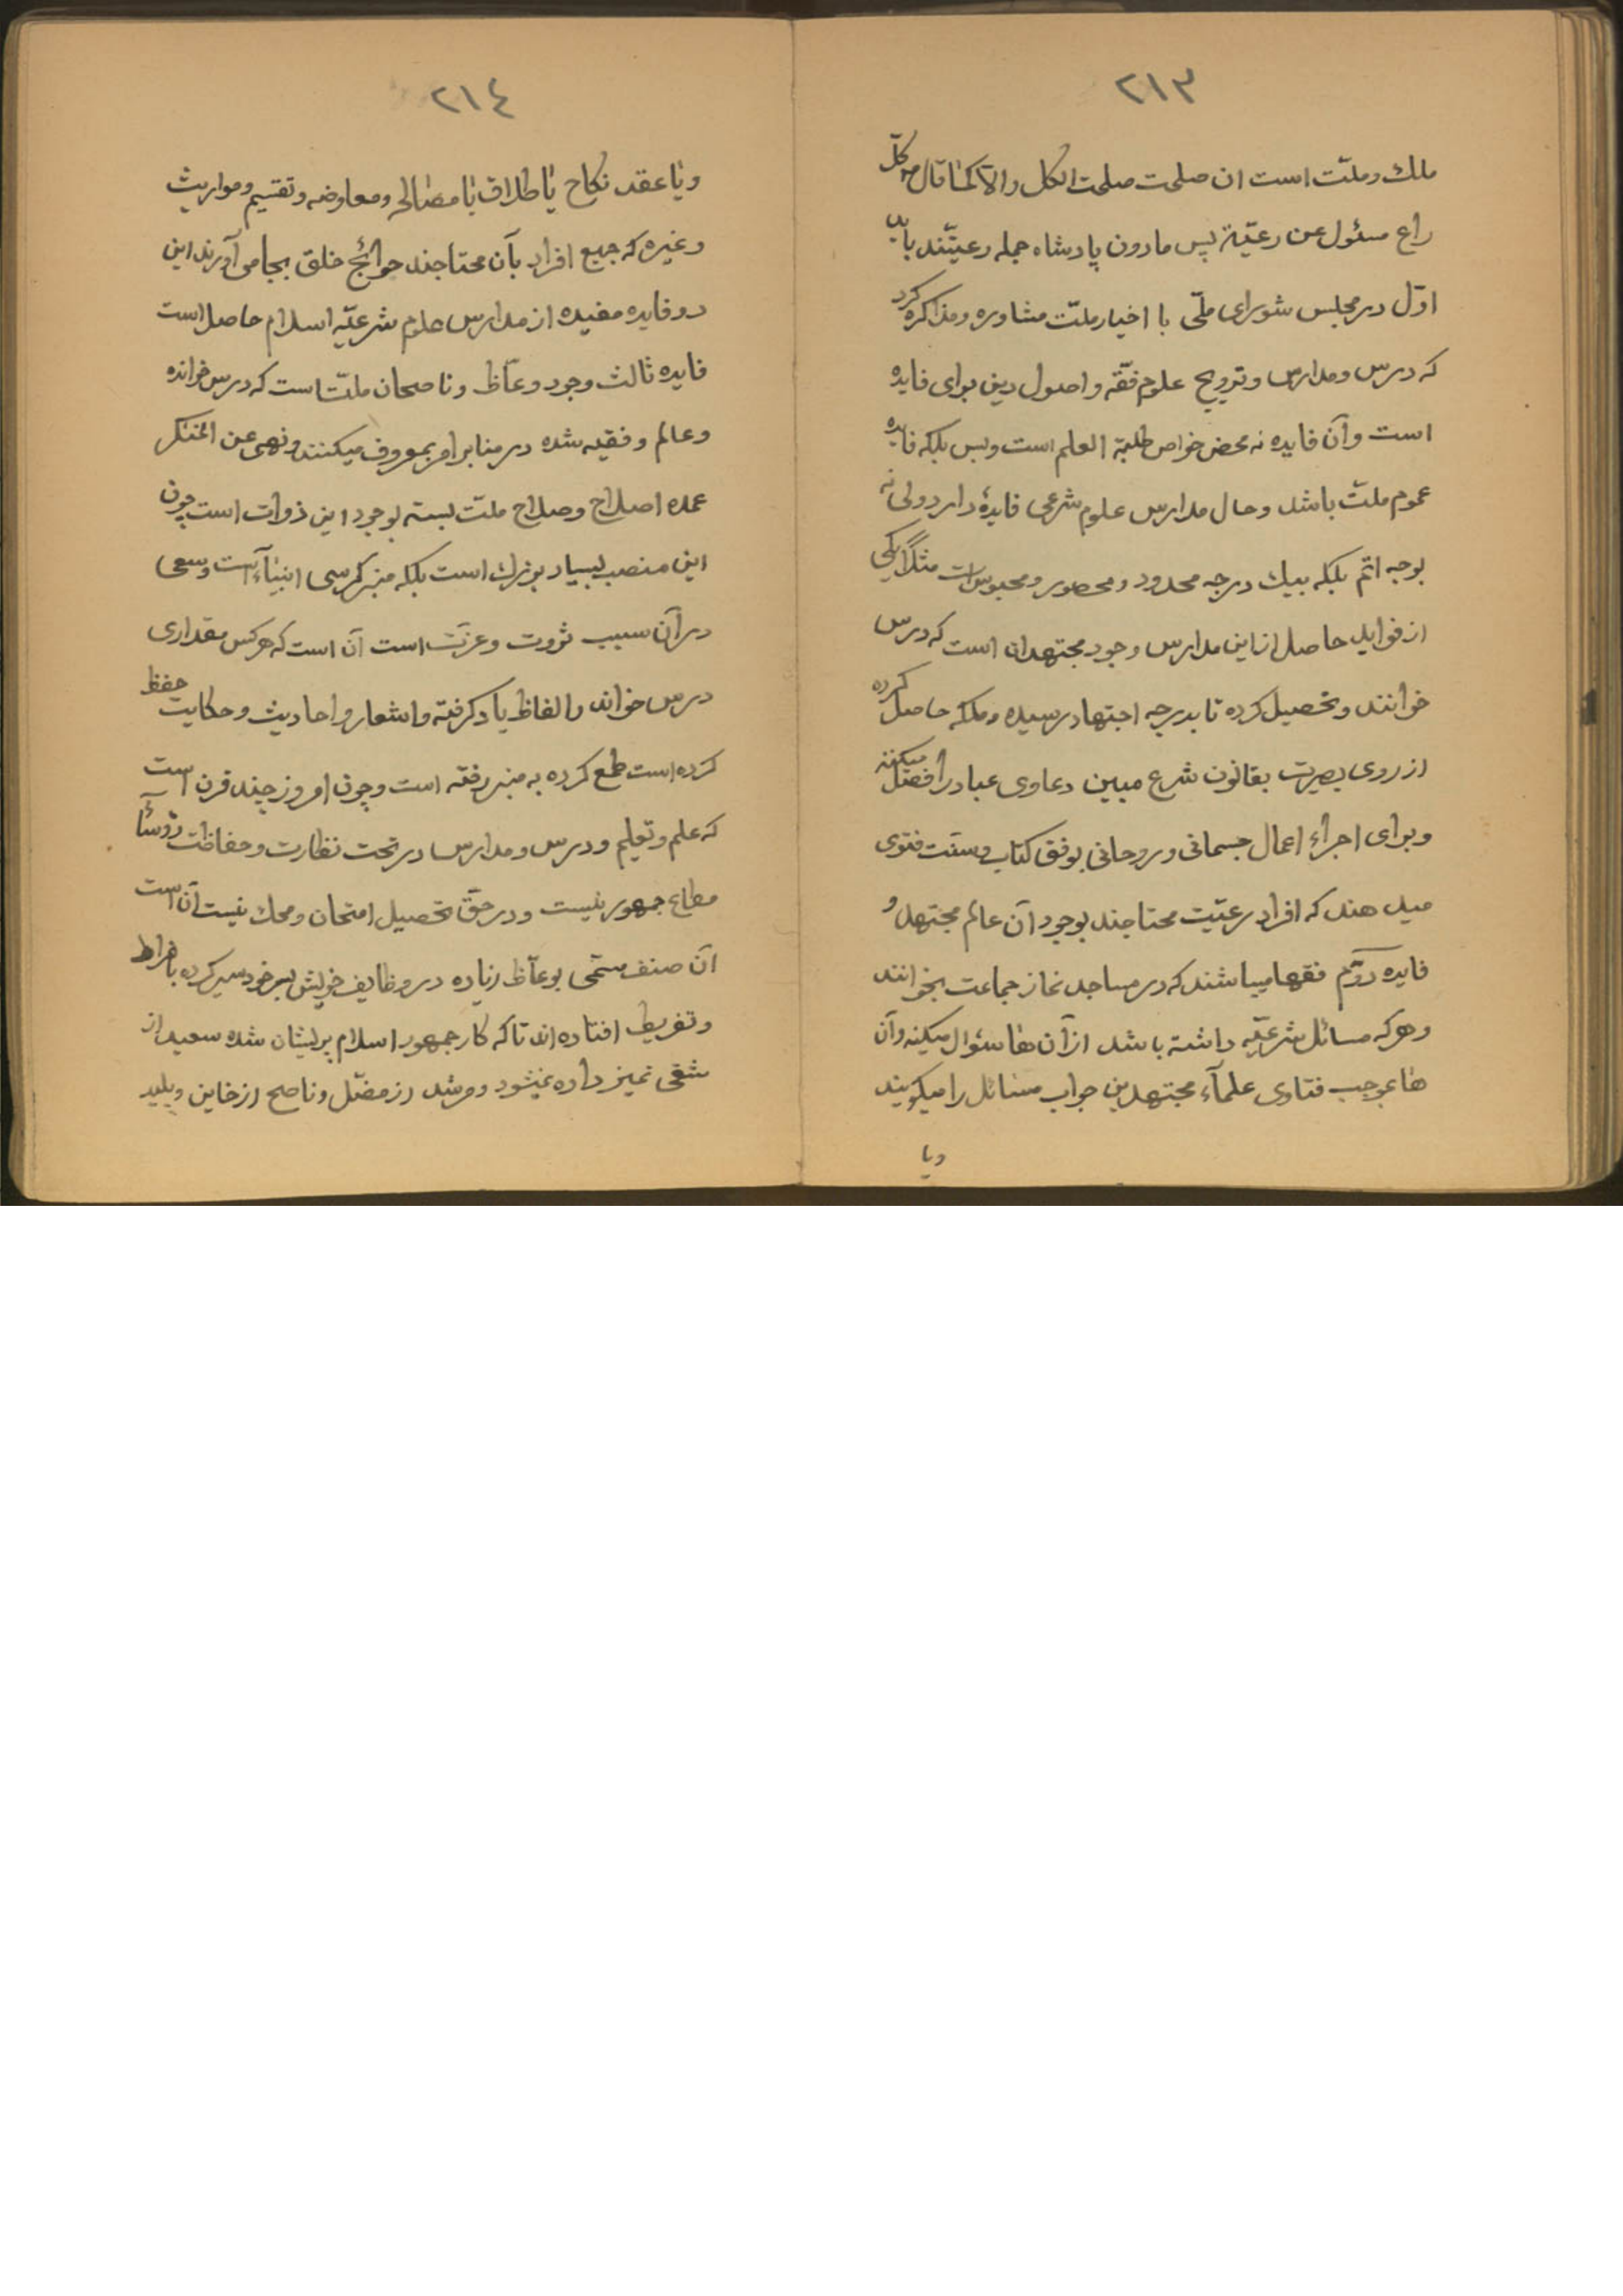 ٢١٣
ملك وملّت است ان صلحت صلحت الكل والّا كما قال ص كلّ
راع مسئول عن رعيّة پس مادون پادشاه جمله رعيّتند بايد
اوّل در مجلس شوراى ملّى با اخيار ملّت مشاوره ومذاكره كرد
كه درس ومدارس وترويج علوم فقّه واصول دين براى فايده
است وآن فايده نه محض خواص طلبة العلم است وبس بلكه فايده
عموم ملّت باشد وحال مدارس علوم شرعى فايدهٔ دارد ولى نه
بوجه اتم بلكه بيك درجه محدود ومحصور ومحبوس است مثلاً يكى
از فوايد حاصل از اين مدارس وجود مجتهدان است كه درس
خوانند وتحصيل كرده تا بدرجه اجتهاد رسيده وملكه حاصل كرده
از روى بصيرت بقانون شرع مبين دعاوى عباد را فصل ميكنند
وبراى اجراء اعمال جسمانى وروحانى بوفق كتاب وسنّت فتوى
ميدهند كه افراد رعيّت محتاجند بوجود آن عالم مجتهد و
فايده دوّم فقها ميباشند كه در مساجد نماز جماعت بخوانند
وهركه مسائل شرعيّه داشته باشد از آن ها سئوال ميكنند وآن
ها بموجب فتاوى علمآء مجتهدين جواب مسائل را ميگويند
ويا
٢١٤
ويا عقد نكاح يا طلاق يا مصالحه ومعاوضه وتقسيم ومواريث
وغيره كه جميع افراد بآن محتاجند حوائج خلق بجا مى آورند اين
دو فايده مفيده از مدارس علوم شرعيّه اسلام حاصل است
فايده ثالث وجود وعّاظ وناصحان ملّت است كه درس خوانده
وعالم وفقيه شده در منابر امر بمعروف ميكنند ونهى عن المنكر
عمده اصلاح وصلاح ملّت بسته بوجود اين ذوات است چون
اين منصب بسيار بزرك است بلكه منبر كرسى انبيآء است وسعى
در آن سبب ثروت وعزّت است آن است كه هركس مقدارى
درس خوانده والفاظ ياد كرفته واشعار واحاديث وحكايت حفظ
كرده است طمع كرده به منبر رفته است وچون امروز چند قرن است
كه علم وتعليم ودرس ومدارس در تحت نظارت وحفاظت رؤسآء
مطاع جمهور نيست ودر حقّ تحصيل امتحان ومحك نيست آن است
آن صنف مسمّى بوعّاظ زياده در وظايف خويش بسر خود سير كرده بافراط
وتفريط افتاده اند تا كه كار جمهور اسلام پريشان شده سعيد از
شقى تميز داده نميشود ومرشد از مضلّ وناصح از خاين وپليد